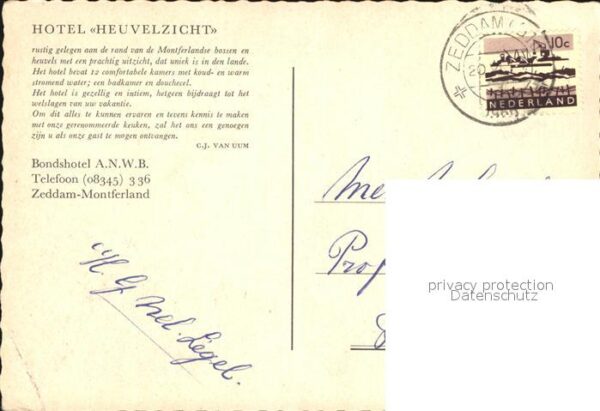 HOTEL «HEUVELZICHT»
rustig gelegen aan de rand van de Montferlandse bossen en
heuvels met een prachtig uitzicht, dat uniek is in den lande.
Het hotel bevat 12 comfortabele kamers met koud- en warm
stromend water; een badkamer en douchecel.
Het hotel is gezellig en intiem, hetgeen bijdraagt tot het
welslagen van uw vakantie.
Om dit alles te kunnen ervaren en tevens kennis te maken
met onze gerenommeerde keuken, zal het ons een genoegen
zijn u als onze gast te mogen ontvangen.
C.J. VAN UUM
Bondshotel A.N.W.B.
Telefoon (08345) 336
Zeddam-Montferland
ZEDDAM
10c
NEDERLAND
Prof
privacy protection
Datenschutz